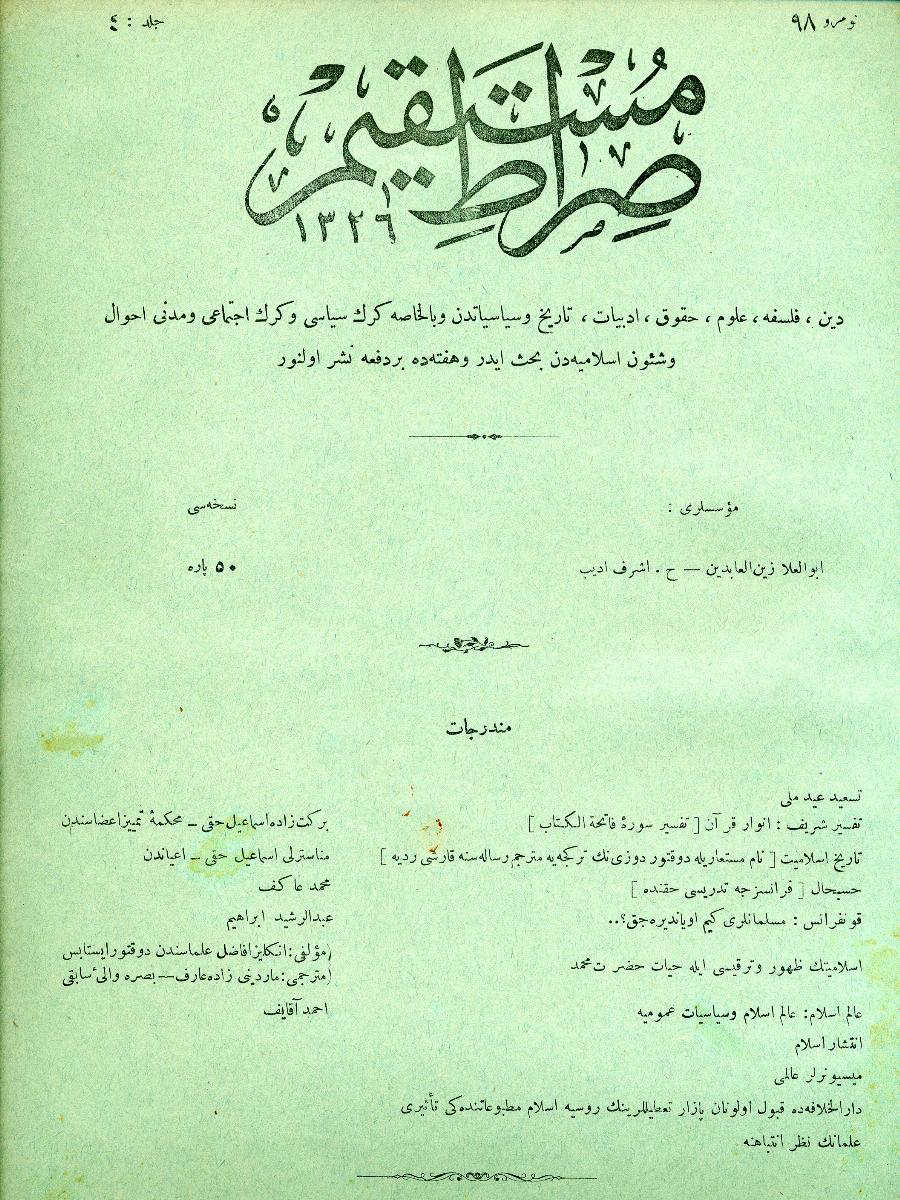 نومرو ٩٨
جلد : ٤
صراط مستقيم
١٣٢٦
دين ، فلسفه ، علوم ، حقوق ، ادبيات ، تاريخ وسياسياتدن وبالخاصه كرك سياسى وكرك اجتماعى ومدنى احوال
وشئون اسلاميه‌دن بحث ايدر وهفته‌ده بردفعه نشر اولنور
مؤسسلرى :
نسخه‌سى
ابوالعلا زين‌العابدين — ح . اشرف اديب
٥٠ پاره
مندرجات
تسعيد عيد ملى
تفسير شريف : انوار قرآن [ تفسير سورۀ فاتحة الكتاب ]
بركت‌زاده اسماعيل حقى ـ محكمۀ تمييز اعضاسندن
تاريخ اسلاميت [ نام مستعاريله دوقتور دوزى‌نك تركجه‌يه مترجم رساله‌سنه قارشى رديه ]
مناسترلى اسماعيل حقى ـ اعياندن
حسبحال [ فرانسزجه تدريسى حقنده ]
محمد عاكف
قونفرانس : مسلمانلرى كيم اوياندیره‌جق؟..
عبدالرشيد ابراهيم
اسلاميتك ظهور وترقيسى ايله حيات حضرت محمد
(مؤلفى: انكليز افاضل علماسندن دوقتور ايستابس
(مترجمى: ماردينى زاده عارف — بصره والئ سابقى
عالم اسلام: عالم اسلام وسياسيات عموميه
احمد آقايف
انتشار اسلام
ميسيونرلر عالمى
دارالخلافه‌ده قبول اولونان پازار تعطيللرينك روسيه اسلام مطبوعاتنده‌كى تأثيرى
علمانك نظر انتباهنه